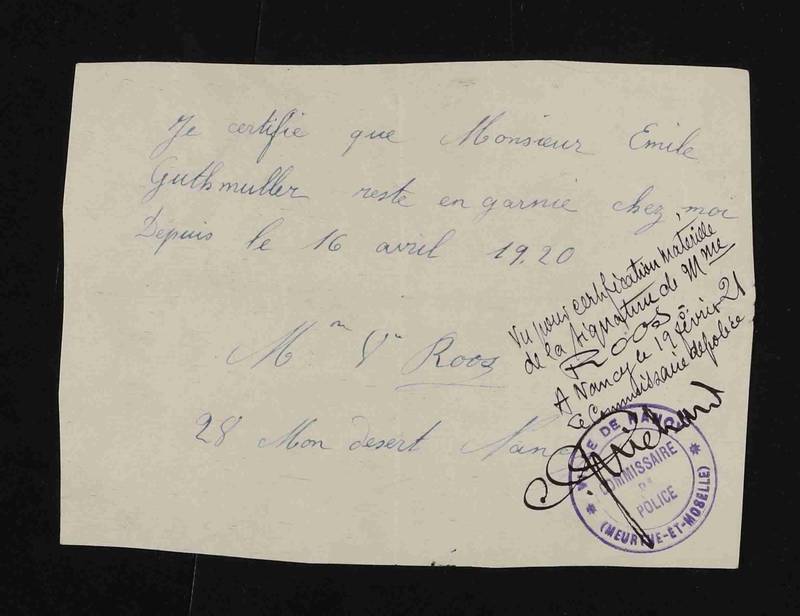 Je certifie que Monsieur Emile
Guthmuller reste en garnie chez moi
Depuis le 16 avril 1920
Mme Vve Roos
28 Mon desert Nancy
Vu pour certification matérielle
de la signature de Mme
ROOS
A Nancy le 19 février 21
Le Commissaire de police
VILLE DE NANCY
COMMISSAIRE
DE
POLICE
(MEURTHE-ET-MOSELLE)